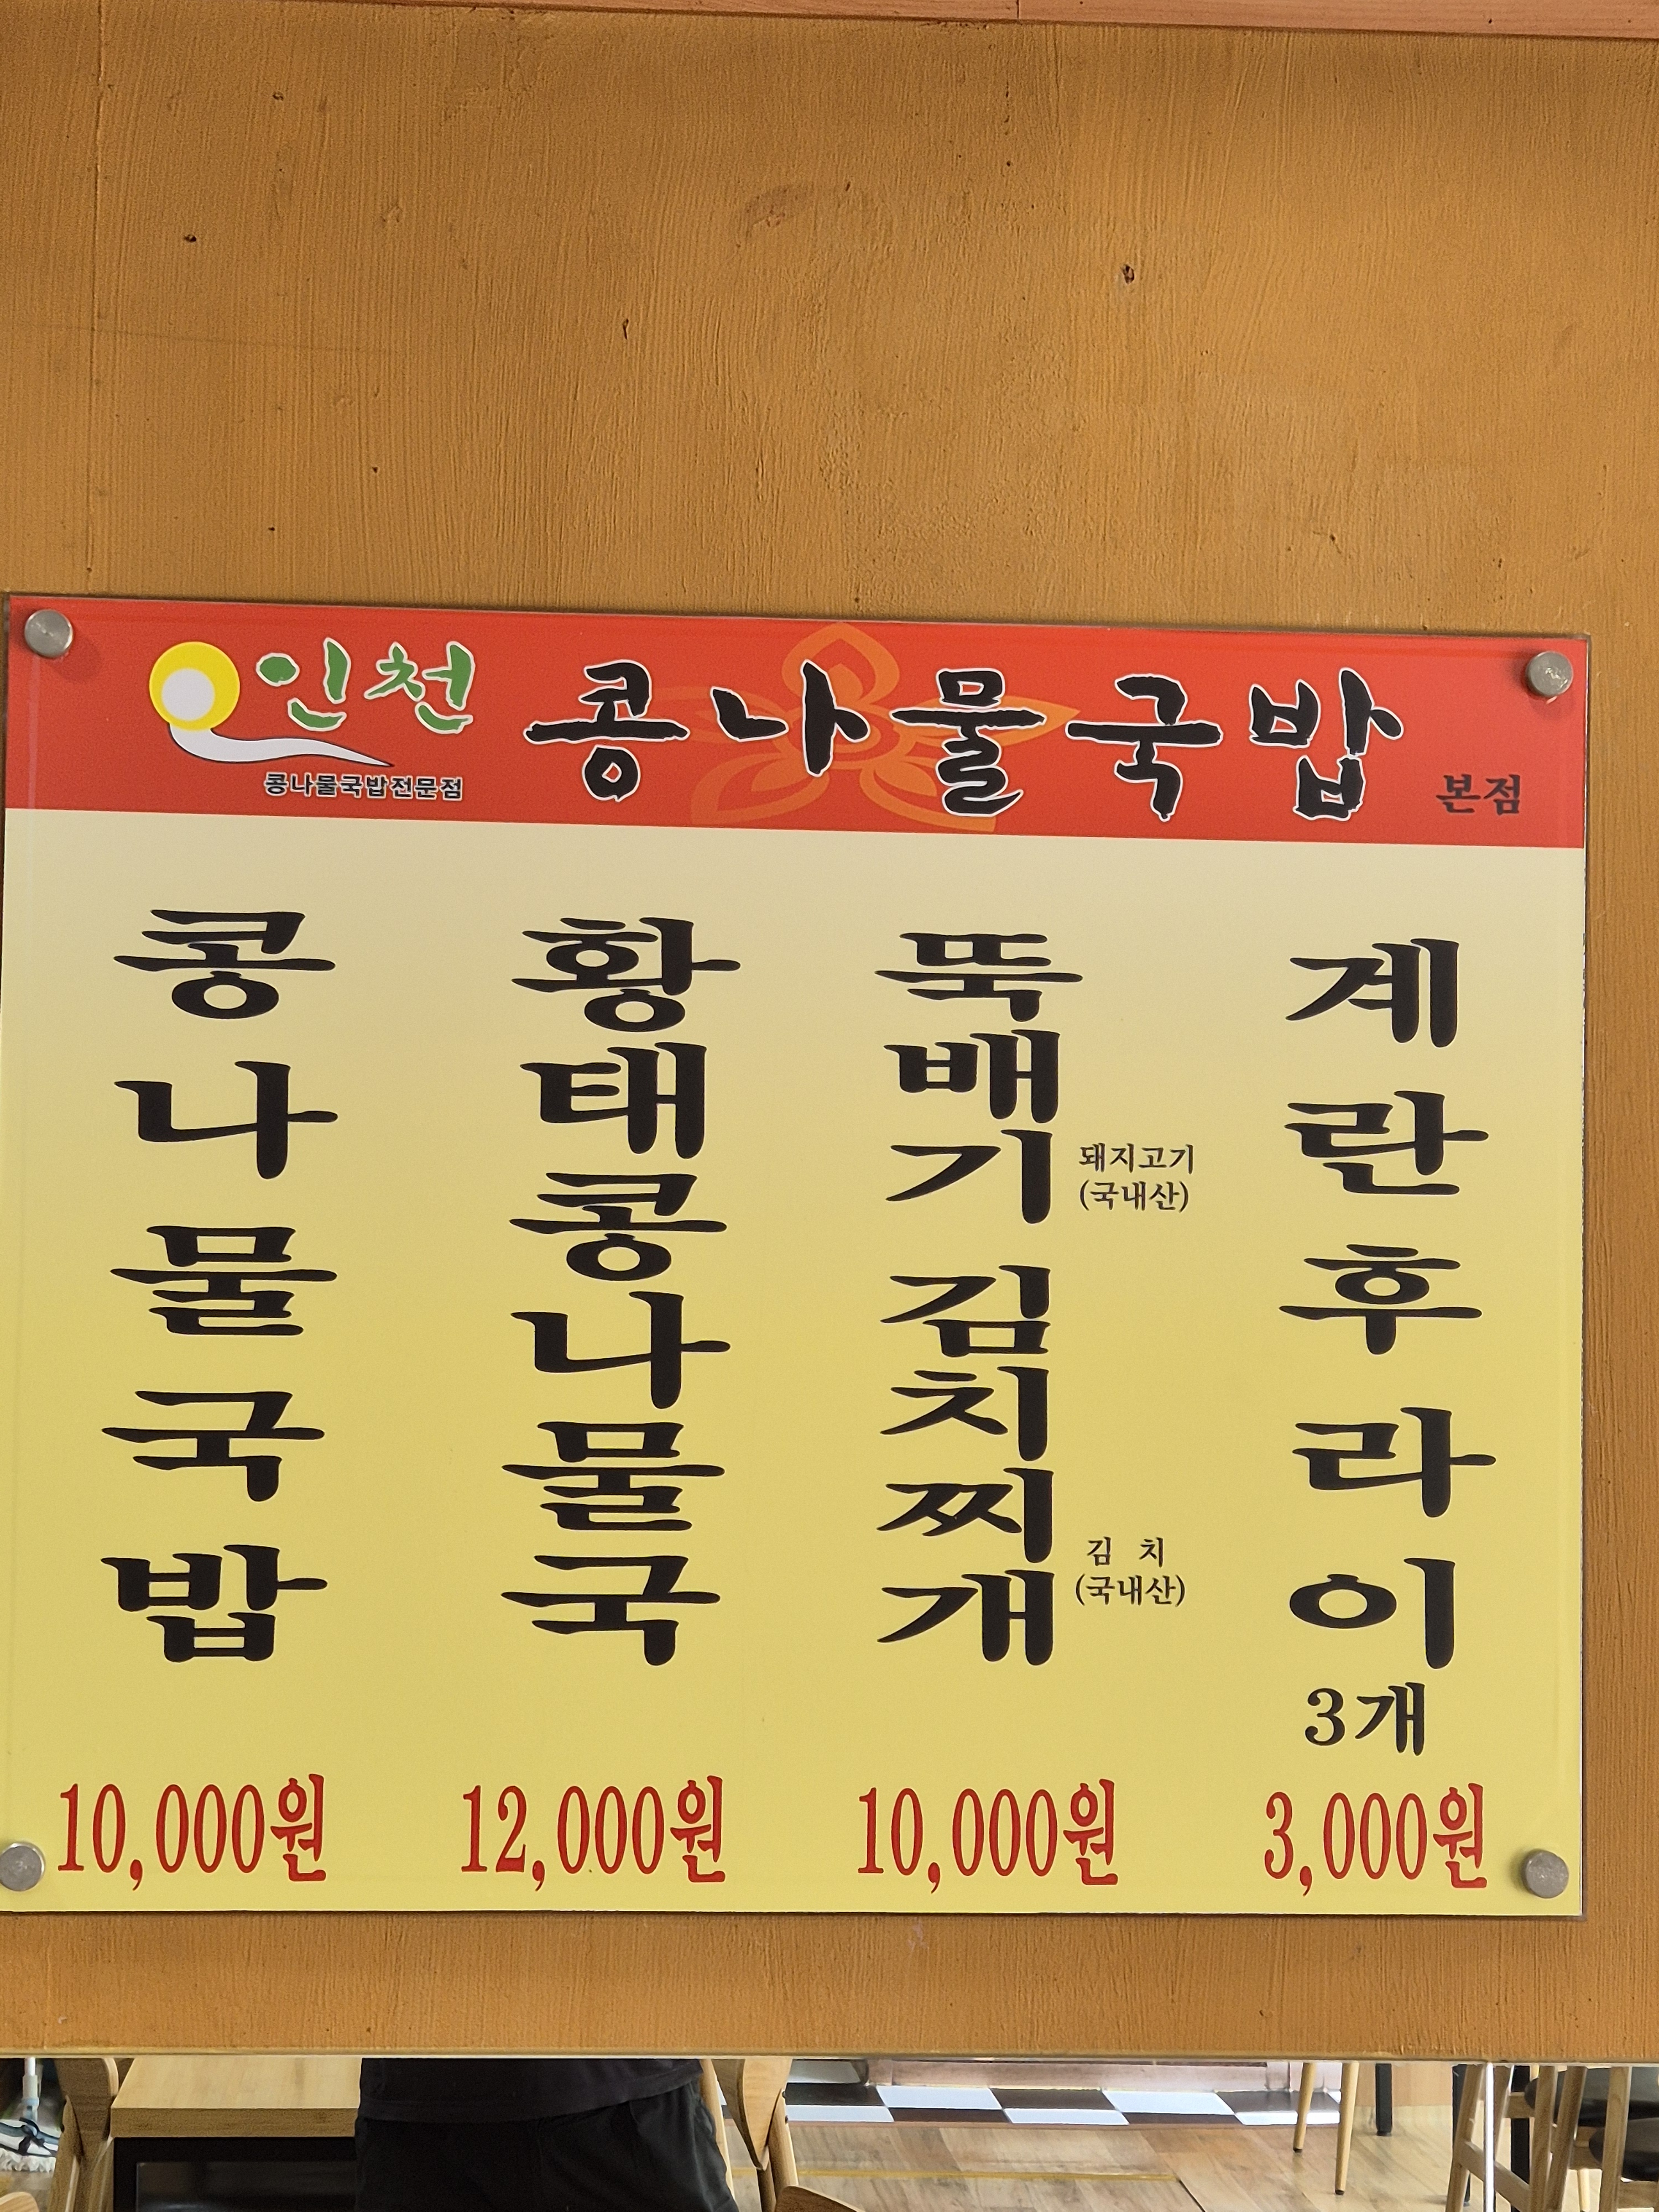 인천 콩나물국밥 본점
콩나물국밥전문점
콩나물국밥
10,000원
황태콩나물국
12,000원
뚝배기 김치찌개
돼지고기
(국내산)
김 치
(국내산)
10,000원
계란후라이
3개
3,000원